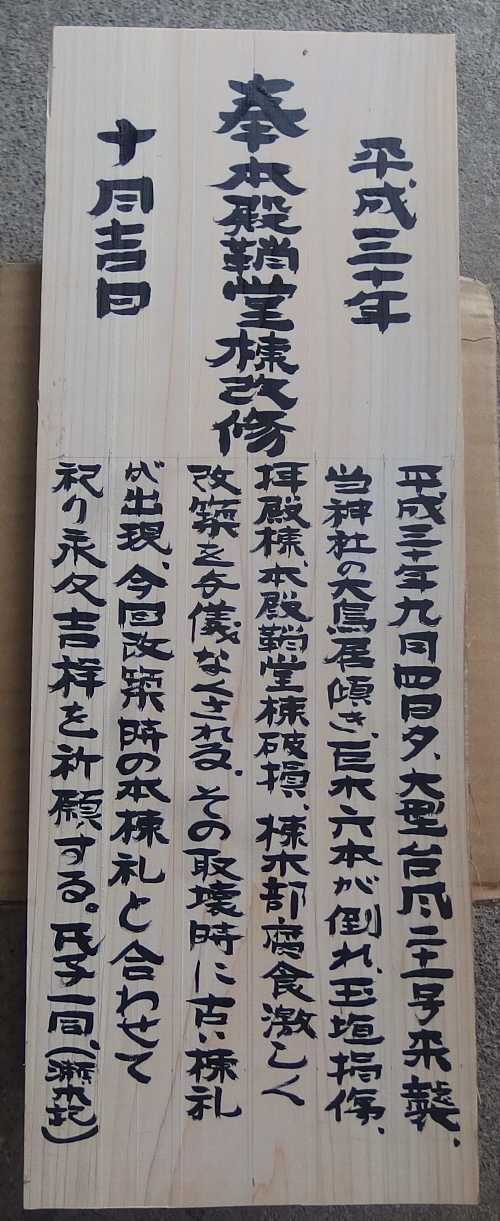 平成三十年
奉本殿鞘堂棟改修
十月吉日
平成三十年九月四日夕、大型台風二十一号来襲、
当神社の大鳥居傾き、巨木六本が倒れ、玉垣損傷、
拝殿様、本殿鞘堂棟破損、棟木部腐食激しく
改築を余儀なくされる。その取壊時に古い棟札
が出現、今回改築時の本棟札と合わせて
祀り永久吉祥を祈願する。氏子一同、(瀬木記)